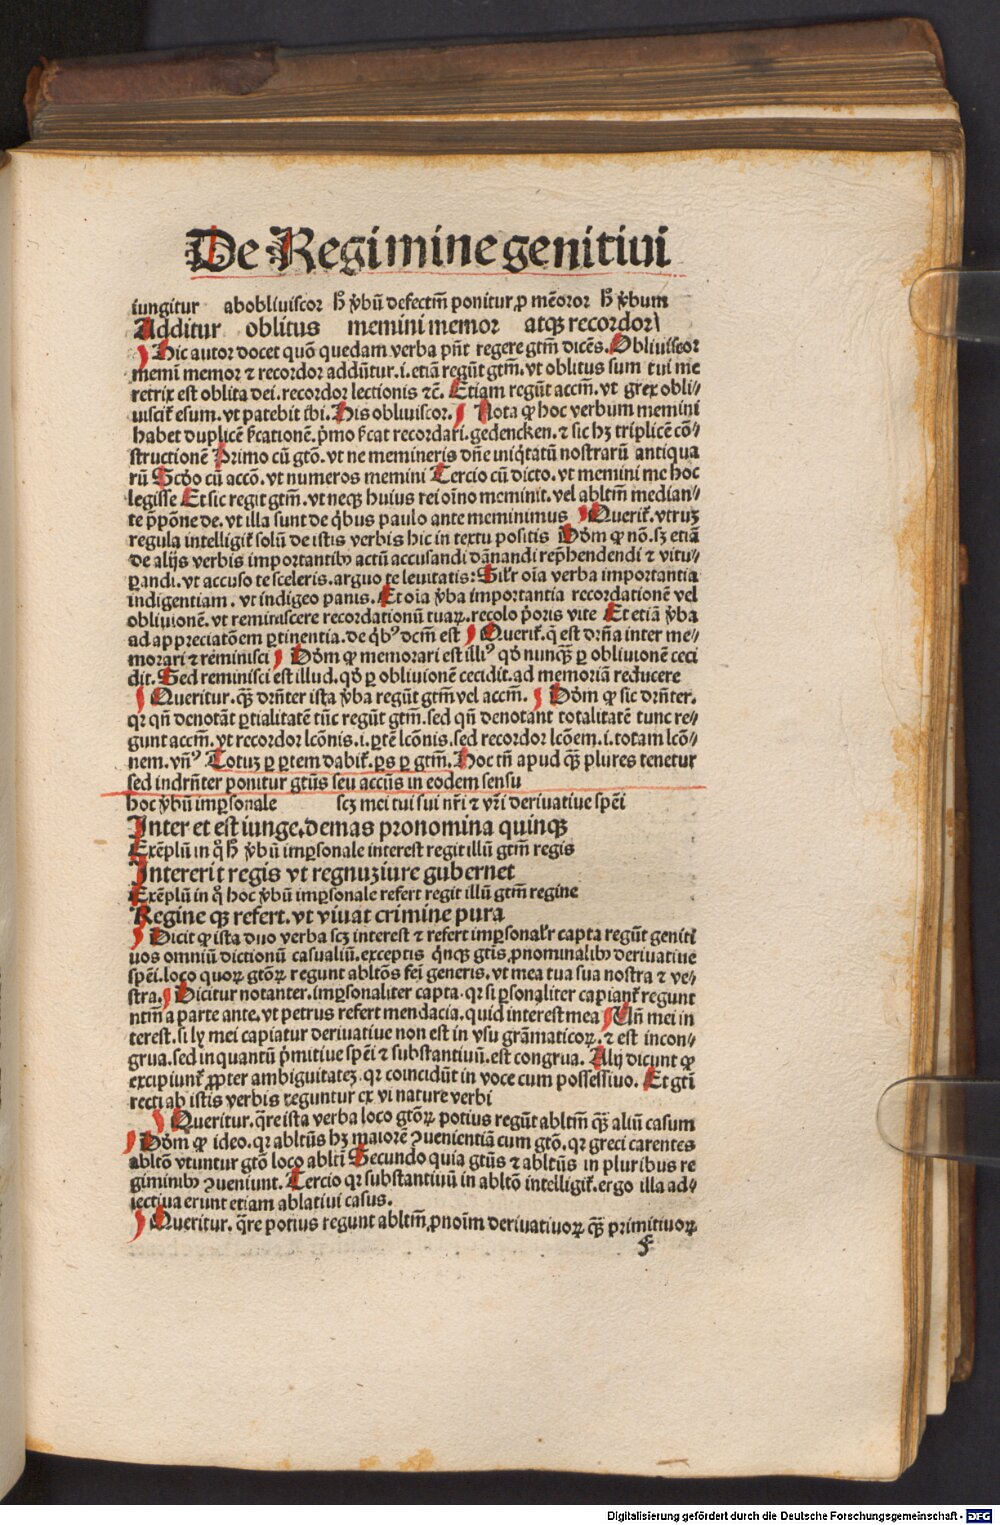 De Regimine genitiui
iungitur abobliuiscor h̄ v̄bū defectm̄ ponitur ꝓ mēoror h̄ v̄bum
Additur oblitus memini memor atqꝫ recordor
Hic autor docet quō quedam verba pn̄t regere gtm̄ dicēs. Obliuiscor
memī memor ⁊ recordor addūtur .i. etiā regūt gtm̄. vt oblitus sum tui me
retrix est oblita dei. recordor lectionis ⁊c̄. Etiam regūt accm̄. vt grex obli⸗
uiscit̄ esum. vt patebit ibi. His obliuiscor. Nota ꝙ hoc verbum memini
habet duplicē s̄cationē. p̄mo s̄cat recordari. gedencken. ⁊ sic hꝫ triplicē cō⸗
structionē Primo cū gtō. vt ne memineris dn̄e iniq̄tatū nostrarū antiqua
rū Scd̄o cū accō. vt numeros memini Tercio cū dicto. vt memini me hoc
legisse Et sic regit gtm̄. vt neqꝫ huius rei oīno meminit. vel abltm̄ median⸗
te p̄pōne de. vt illa sunt de q̄bus paulo ante meminimus Querit̄. vtrūꝫ
regula intelligit̄ solū de istis verbis hic in textu positis Dd̄m ꝙ nō. sꝫ etiā
de alijs verbis importantibꝰ actū accusandi dānandi rep̄hendendi ⁊ vitu⸗
ꝑandi. vt accuso te sceleris. arguo te leuitatis: Sil̄r oīa verba importantia
indigentiam. vt indigeo panis. Et oīa v̄ba importantia recordationē vel
obliuionē. vt reminiscere recordationū tuaꝝ. recolo p̄oris vite Et etiā v̄ba
ad appreciatōem ꝑtinentia. de q̄bꝰ dcm̄ est Querit̄. q̄ est dr̄na inter me⸗
morari ⁊ reminisci Dd̄m ꝙ memorari est illiꝰ qd̄ nunqꝫ̄ ꝑ obliuionē ceci
dit. Sed reminisci est illud. qd̄ ꝑ obliuionē cecidit. ad memoriā reducere
Queritur. qꝫ̄ dr̄nter ista v̄ba regūt gtm̄ vel accm̄. Dd̄m ꝙ sic dr̄nter.
qꝛ qn̄ denotāt ꝑtialitatē tūc regūt gtm̄. sed qn̄ denotant totalitatē tunc re⸗
gunt accm̄. vt recordor lcōnis .i. ꝑtē lcōnis. sed recordor lcōem .i. totam lcō⸗
nem. vn̄ꝰ Totuꝫ ꝑ ꝑtem dabit̄. ꝑs ꝑ gtm̄. Hoc tn̄ apud qꝫ̄ plures tenetur
sed indr̄nter ponitur gtūs seu accūs in eodem sensu
hoc v̄bū imꝑsonale scꝫ mei tui sui nr̄i ⁊ vr̄i deriuatiue spēi
Inter et est iunge. demas pronomina quinqꝫ
Exēplū in q̄ h̄ v̄bū imꝑsonale interest regit illū gtm̄ regis
Intererit regis vt regnuꝫ iure gubernet
Exēplū in q̄ hoc v̄bū imꝑsonale refert regit illū gtm̄ regine
Regine qꝫ refert. vt viuat crimine pura
Dicit ꝙ ista duo verba scꝫ interest ⁊ refert imꝑsonal̄r capta regūt geniti
uos omniū dictionū casualiū. exceptis q̄nqꝫ gtīs ꝓnominalibꝰ deriuatiue
spēi. loco quoꝝ gtōꝝ regunt abltōs fei generis. vt mea tua sua nostra ⁊ ve⸗
stra. Dicitur notanter. imꝑsonaliter capta. qꝛ si ꝑsonaliter capiant̄ regunt
ntm̄ a parte ante. vt petrus refert mendacia. quid interest mea Un̄ mei in
terest. si ly mei capiatur deriuatiue non est in vsu grāmaticoꝝ. ⁊ est incon⸗
grua. sed inquantū p̄mitiue spēi ⁊ substantiuū. est congrua. Alij dicunt ꝙ
excipiunt̄ ꝓpter ambiguitateꝫ. qꝛ coincidūt in voce cum possessiuo. Et gtī
recti ab istis verbis reguntur ex vi nature verbi
Queritur. q̄re ista verba loco gtōꝝ potius regūt abltm̄ qꝫ̄ aliū casum
Dd̄m ꝙ ideo. qꝛ abltūs hꝫ maiorē ꝯuenientiā cum gtō. qꝛ greci carentes
abltō vtuntur gtō loco ablti Secundo quia gtūs ⁊ abltūs in pluribus re
giminibꝰ ꝯueniunt. Tercio qꝛ substantiuū in abltō intelligit̄. ergo illa ad⸗
iectiua erunt etiam ablatiui casus.
Queritur. q̄re potius regunt abltm̄ ꝓnoīm deriuatiuoꝝ qꝫ̄ primitiuoꝝ
Digitalisierung gefördert durch die Deutsche Forschungsgemeinschaft - DFG